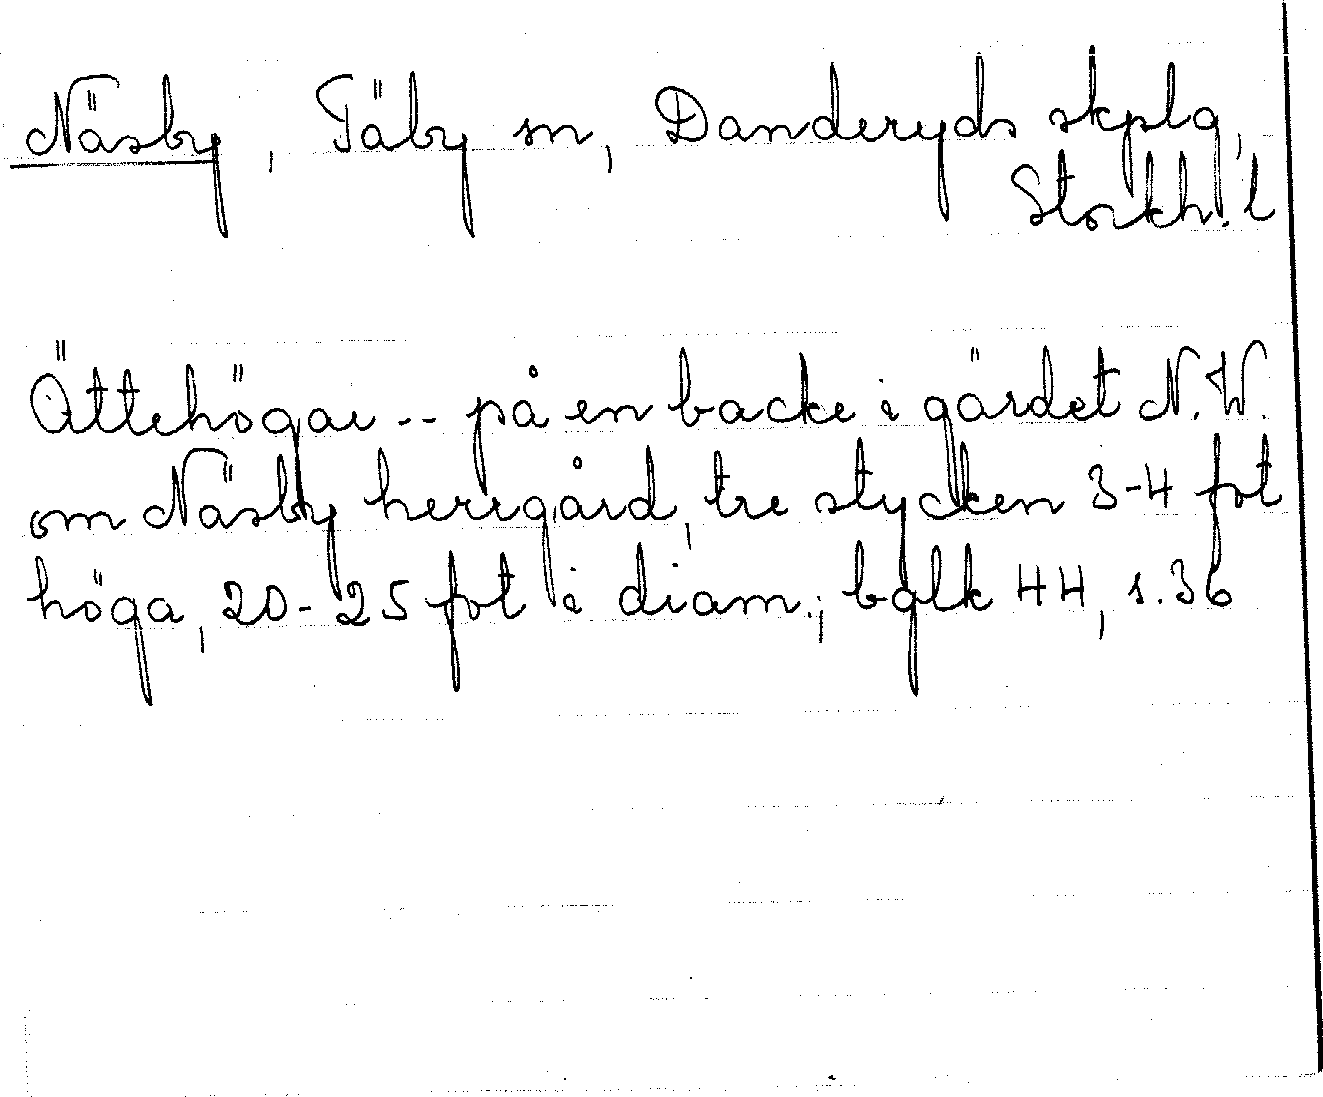 Näsby, Täby sn, Danderyds skplg,
Stockh. l
Ättehögar -- på en backe i gärdet N.W.
om Näsby herrgård, tre stycken 3-4 fot
höga, 20-25 fot i diam.; bglk 44, s. 36